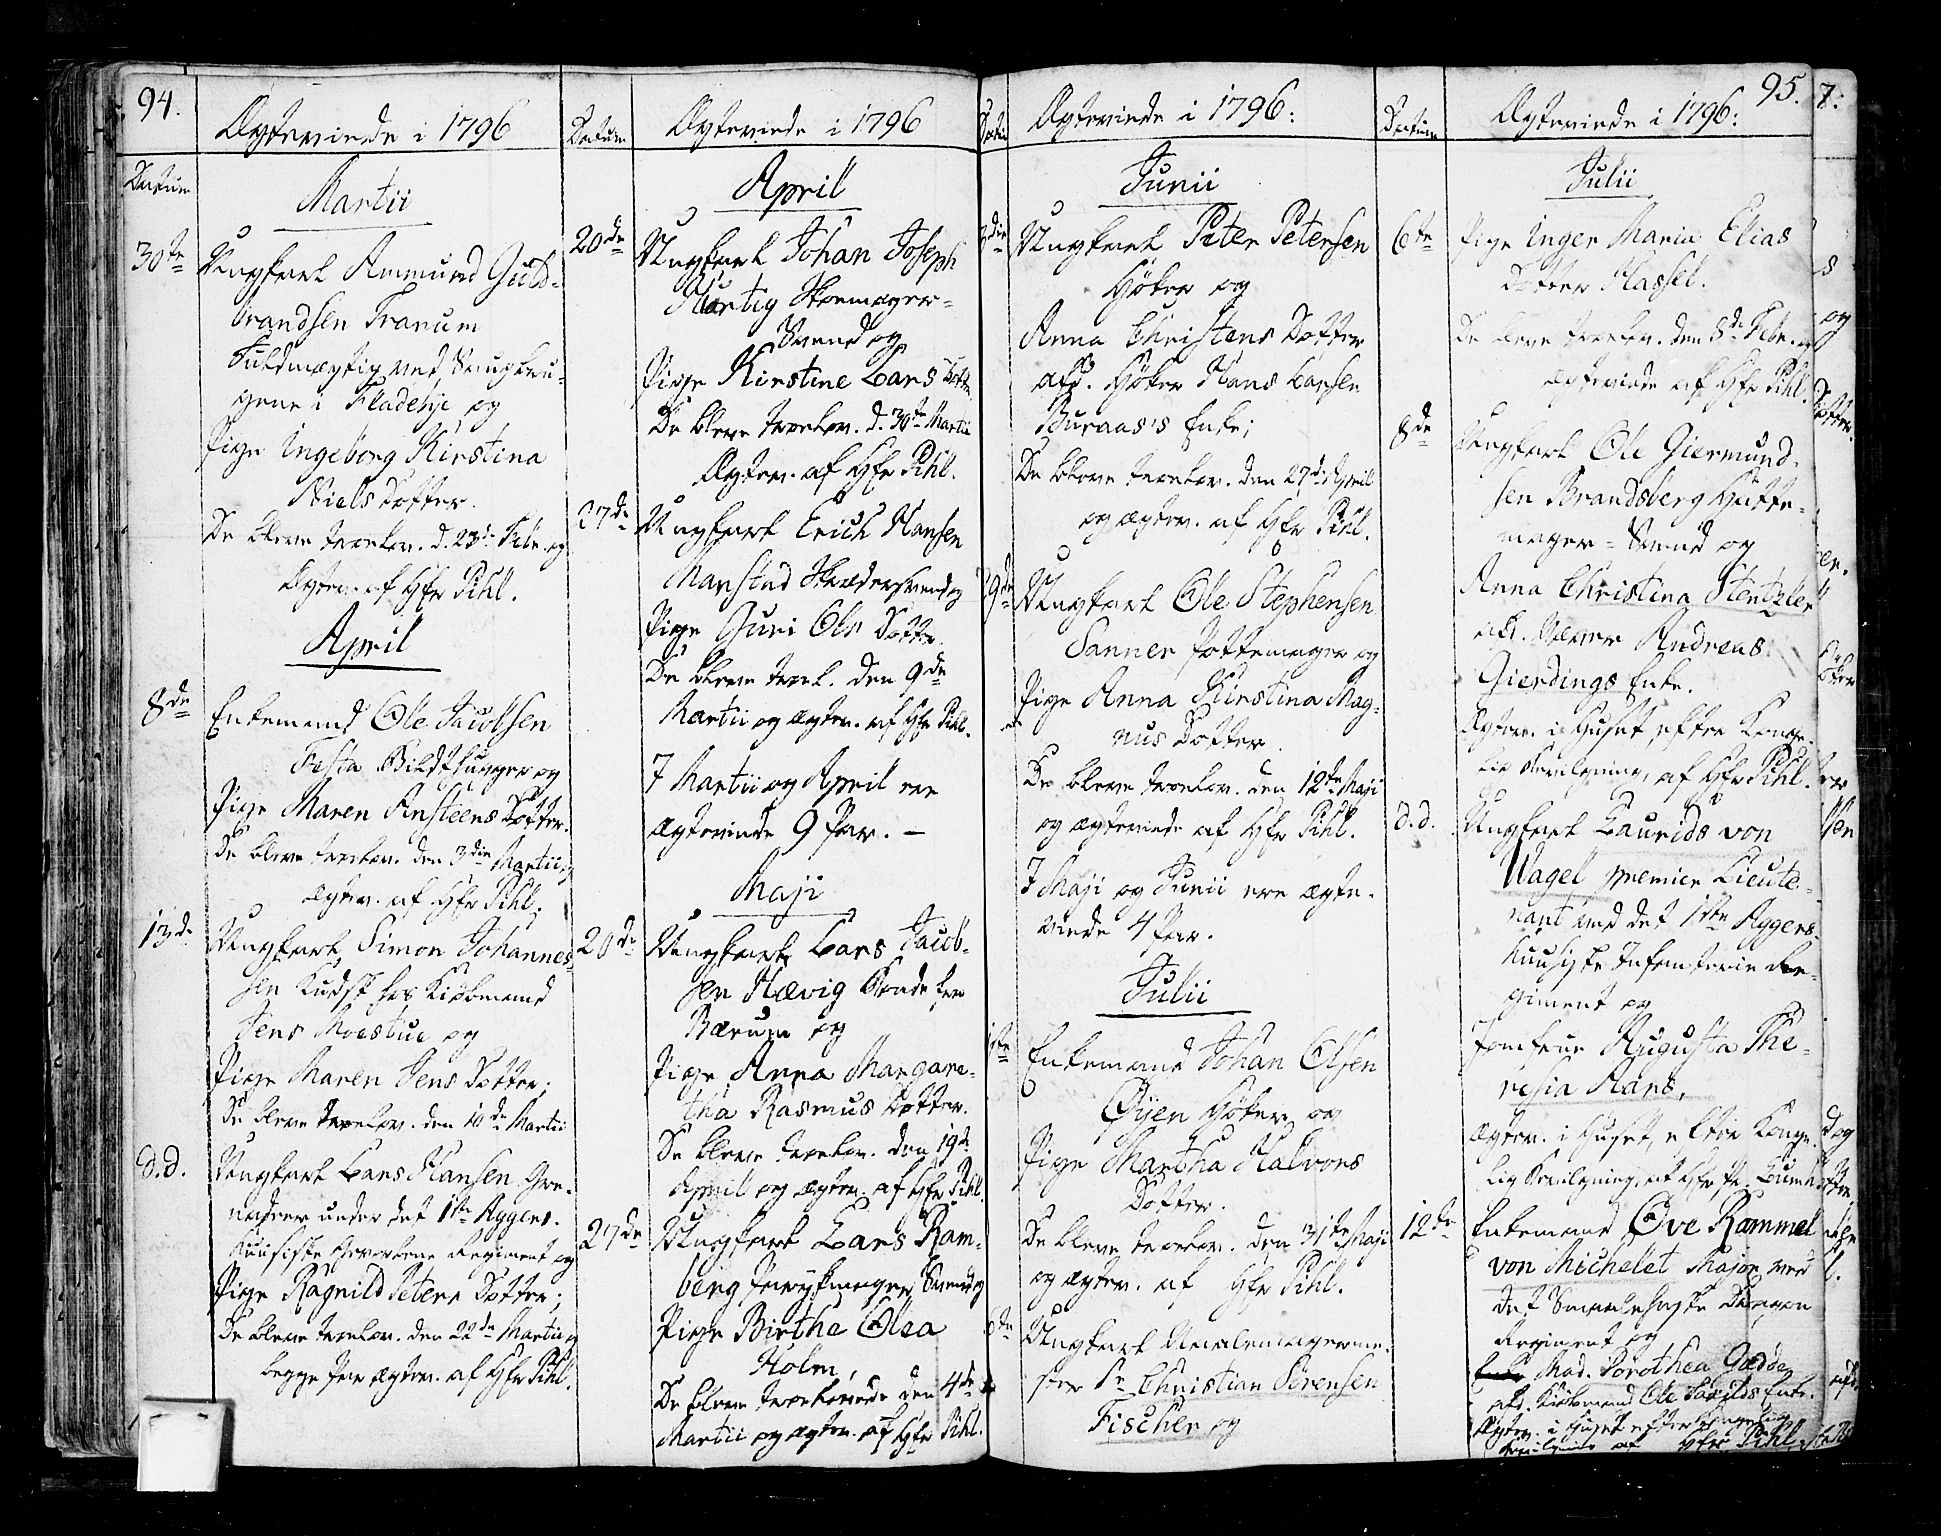 94.
Ægteviede i 1796
Datum
Martii
30te
Ungkarl Ammund Guld-
brandsen Tranum
Fuldmægtig ved
i Fladebye og
Pige Ingeborg Kirstina
Niels Dotter.
De bleve trolov. d. 23de Febr. og
Ægtev. af Hr Pihl.
April
8de
Enkemand Ole Jacobsen
Festa Bildthugger og
Pige Maren Ansteens Dotter.
De bleve trolov. den 3die Martii og
ægtev. af Hr Pihl.
13de
Ungkarl Simon Johannes-
sen Kudsk hos Kiøbmand
Jens Moestue og
Pige Maren Jens Dotter;
De bleve trolov. den 10de Martii
d.d.
Ungkarl Lars Hansen Gre-
nadeer under det 1te Aggers-
huusiske Hvervede Regiment og
Pige Ragnild Peters Dotter;
De bleve trolov. den 22de Martii og
begge Par ægtev. af Hr Pihl.
Datum
Ægteviede i 1796
April
20de
Ungkarl Johan Joseph
Hartig Skoemager-
Svend og
Pige Kirstine Lars Dotter
De bleve trolov. d. 30te Martii
Ægtev. af Hr Pihl.
27de
Ungkarl Erich Hansen
Manstad Skrædersvend og
Pige Guri Ols Dotter.
De bleve trol. den 9de
Martii og ægtev. af Hr Pihl.
I Martii og April ere
ægteviede 9 Par. –
Maji
20de
Ungkarl Lars Jacob-
sen Hævig Bonde fra
Bærum og
Pige Anna Margare-
tha Rasmus Dotter.
De bleve trolov. den 19de
April og ægtev. af Hr Pihl.
27de
Ungkarl Lars Ram-
berg Parykmager Svend og
Pige Birthe Olea
Holm,
De bleve trolovede den 4de
Martii og ægtev. af Hr Pihl.
Datum
Ægteviede i 1796:
Junii
Ungkarl Peter Petersen
Høker og
Anna Christens Dotter
afd. Høker Hans Larsen
Buraas's Enke;
De bleve trolov. den 27de April
og ægtev. af Hr Pihl.
Ungkarl Ole Stephensen
Sanner Pottemager og
Pige Anna Kirstina Mag-
nus Dotter.
De bleve trolov. den 12te Maji
og ægteviede af Hr Pihl.
I Maji og Junii ere ægte-
viede 4 Par.
Julii
1te
Enkemand Johan Olsen
Øyen Høker og
Pige Martha Halvors
Dotter.
De bleve trolov. den 31te Maji
og ægtev. af Hr Pihl.
Ungkarl
Sr Christian Sörensen
Fischer og
95.
Datum
Ægteviede i 1796:
Julii
6te
Pige Inger Maria Elias
Dotter Hassel.
De bleve trolov. den 8de Febr. og
ægteviede af Hr Pihl.
8de
Ungkarl Ole Giermund-
sen Brandsberg Hatte-
mager-Svend og
Anna Christina Stentzler
afd. Væver Andreas
Gierdings Enke.
Ægtev. i Huset, efter Konge-
lig Bevilgning, af Hr Pihl.
d.d.
Ungkarl Laurids von
Wagel premier Lieute-
nant ved det 1ste Aggers-
huusiske Infanterie Re-
giment og
Jomfrue Augusta The-
resia Aars,
ægtev. i Huset, efter Konge-
lig Bevilgning, af Hr
12te
Enkemand Ove Rammel
von Michelet Major ved
det Smaalehnske Dragon
Regiment og
Mad. Dorothea Gædde
afd. Kiøbmand Ole Enke.
Ægtev. i Huset efter Kongelig
Bevilgning af Hr Pihl
7:
s
og
Dotter.
en.
ter
sen
og
afd.